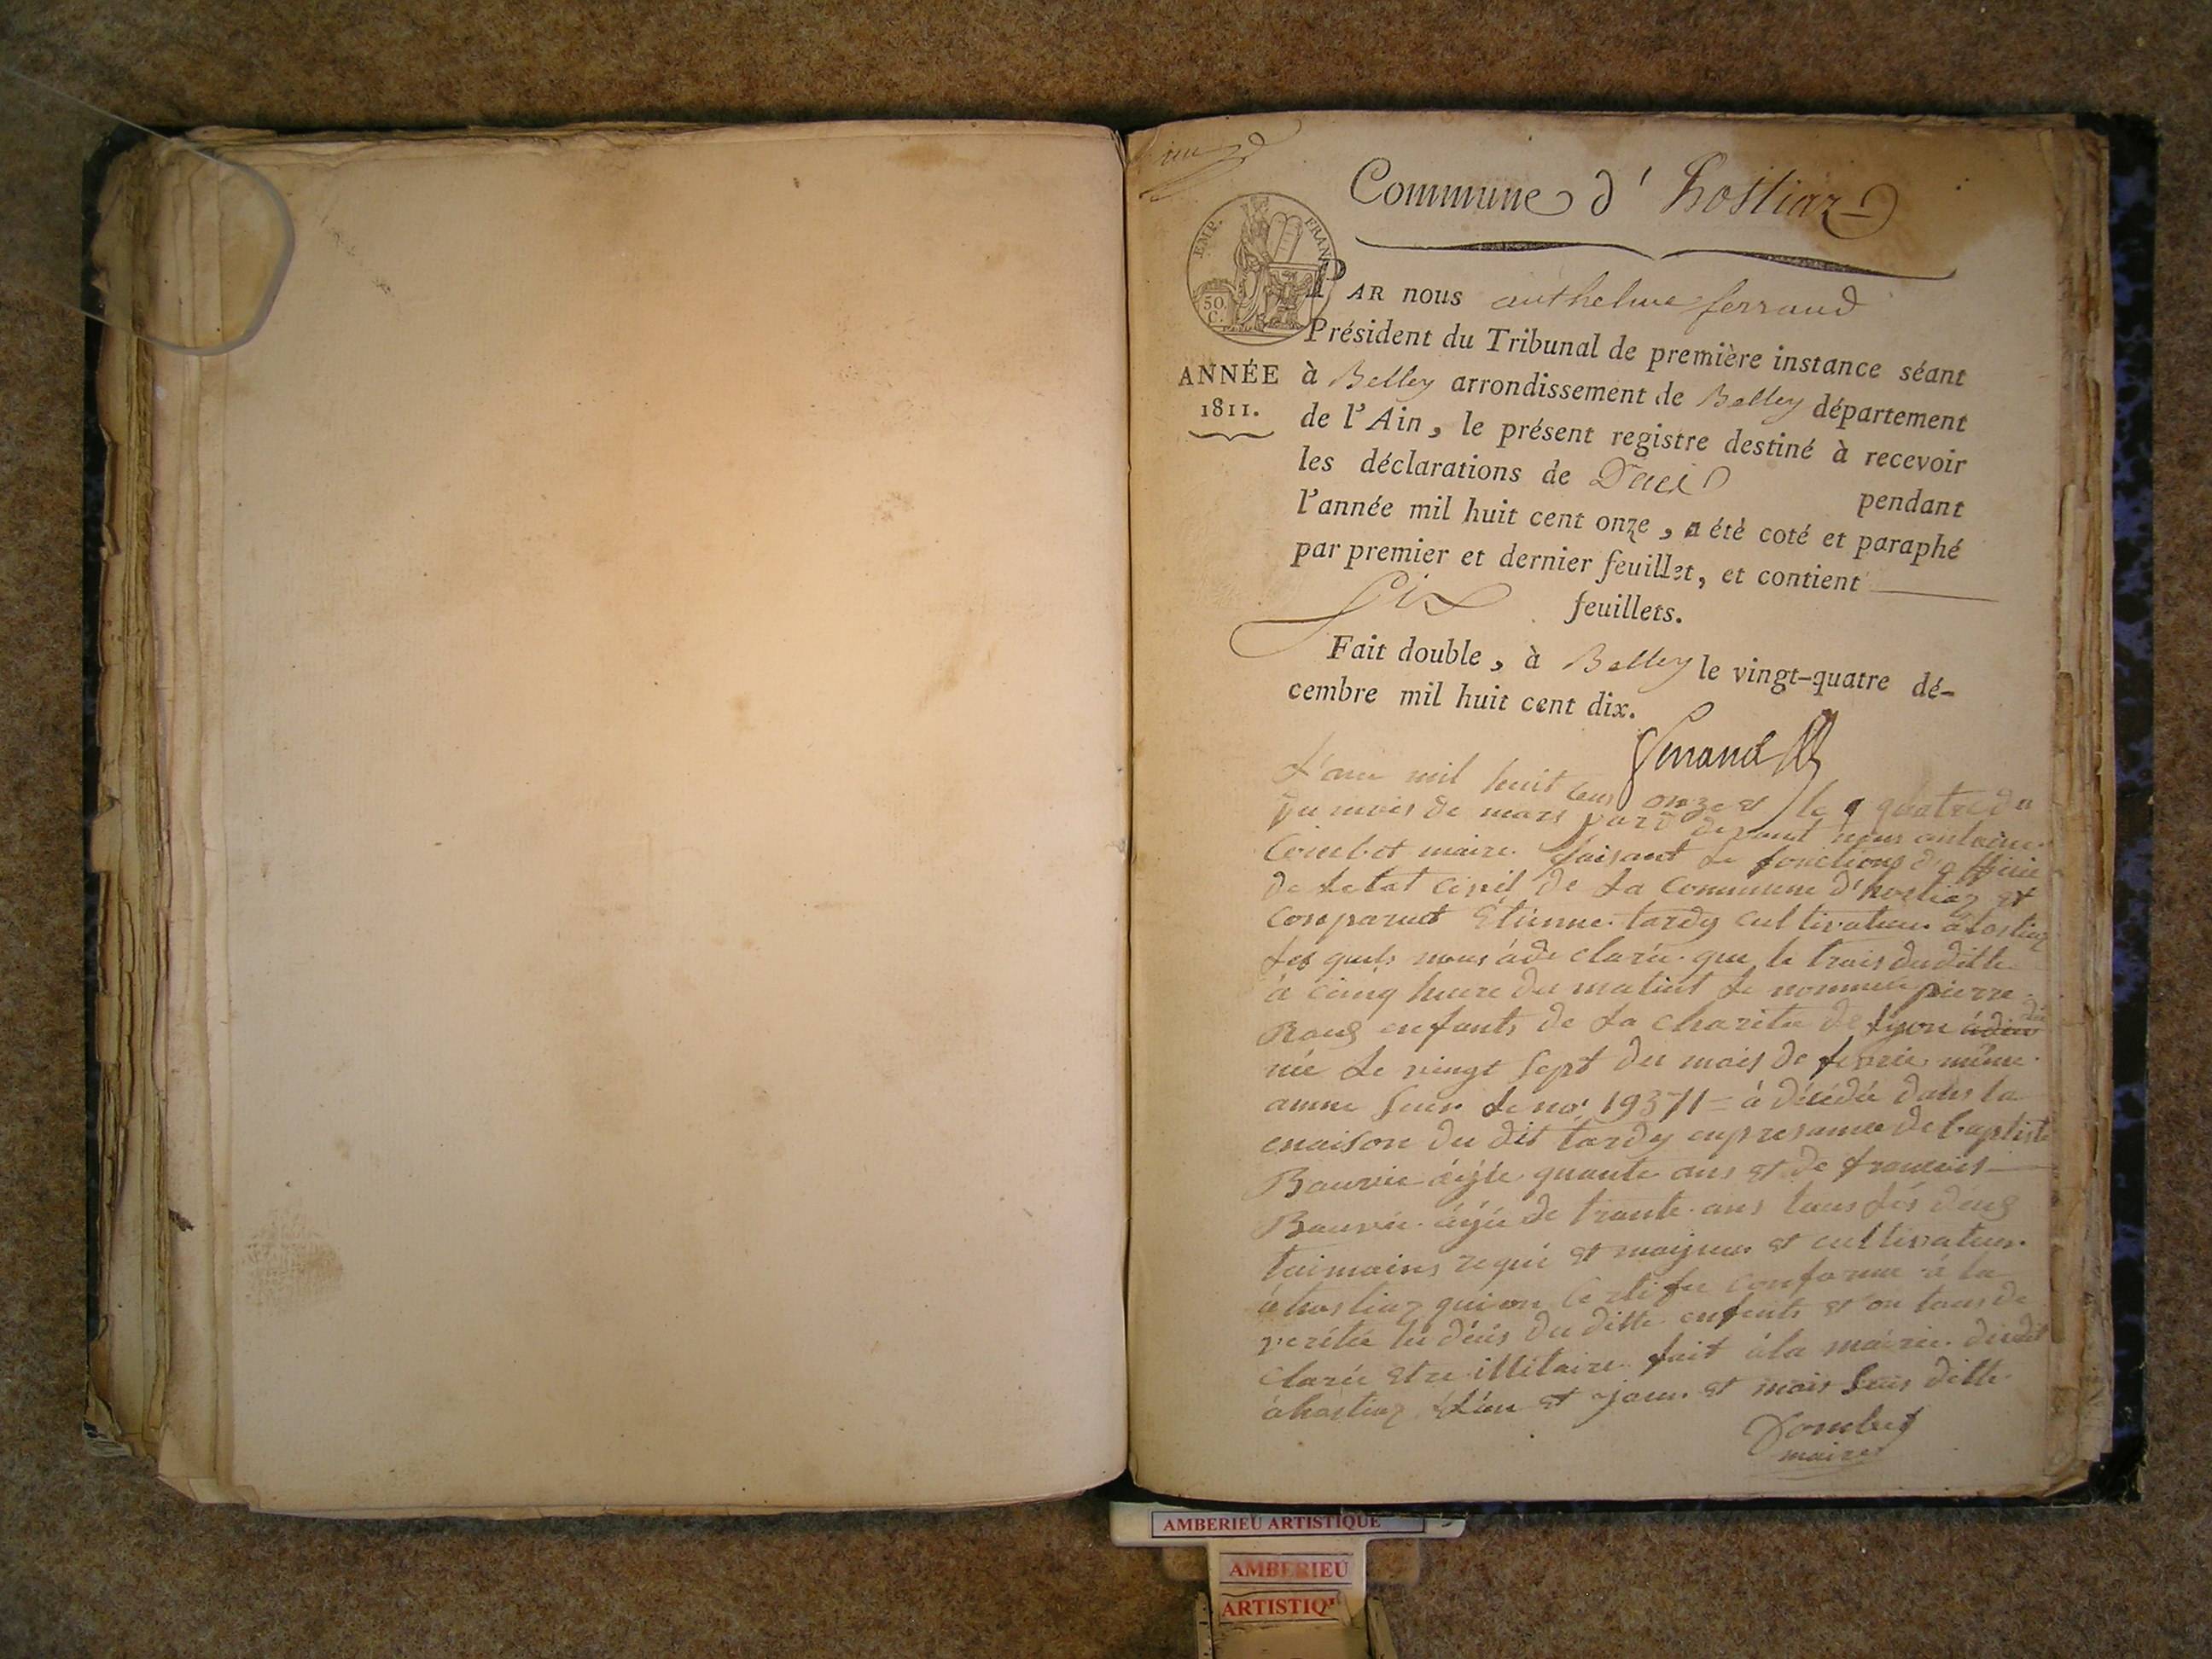 Commune d'hostiaz
EMP. FRAN
50
C.
PAR nous anthelme ferrand
Président du Tribunal de première instance séant
ANNÉE
1811.
à Belley arrondissement de Belley département
de l'Ain, le présent registre destiné à recevoir
les déclarations de Décès pendant
l'année mil huit cent onze, a été coté et paraphé
par premier et dernier feuillet, et contient
six feuillets.
Fait double, à Belley le vingt-quatre dé-
cembre mil huit cent dix.
ferrand
L'an mil huit cens onze et le quatre du
du mois de mars pard devant nous antoine
maire faisant le fonctions d'officie
de letat civil de la Commune d'hostiaz et
comparuct Etienne tardy cultivateur a hostiaz
les quels nous à de clarée que le trois du ditte
à cinq heure du matint le nommée pierre
Roug enfants de la charitée de lyon
née le vingt sept du mois de fevrie même
anne sur le no. 19371 = à décédé dans la
maison du dit tardy en presance de baptiste
Bauvie agée quante ans et de francois
Bauvie agée de trante ans tous lés deug
taimoins requi et majeur et cultivateur
a hostiaz qui on certifee conforme à la
verétée le décès du ditte enfents et on tous dé
clarée etre illitaire fait à la mairie dudit
a hostiaz l'an et jour et mois suis ditte
maire
AMBERIEU ARTISTIQUE
AMBERIEU
ARTISTIQ